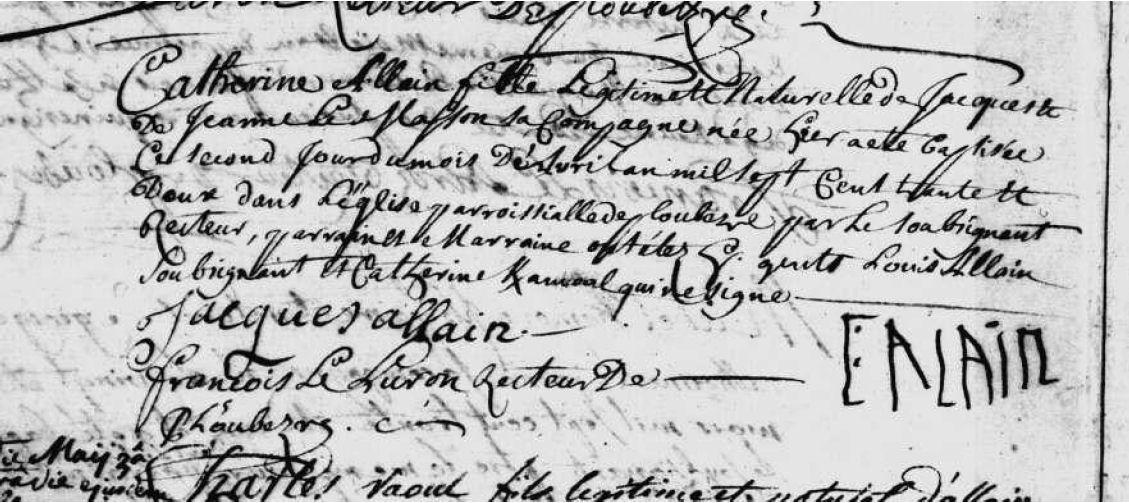 Recteur De Ploubezre.
Catherine Allain fille Legitime et Naturelle de Jacques et
De Jeanne Le Masson sa Compagne née hier a eté baptisée
Ce second Jour du mois D'Avril an mil sept Cent trante et
Deux dans L'église parroissialle de ploubezre par Le soubsignant
Recteur, parrain et Marraine ont étés gents Louis Allain
soubsignant et Catherine qui ne signe
Jacques allain.
E ALAIN
francois Le Luron Recteur De
Ploubezre.
Maij
Charles raoul fils legitime et naturel d'allain